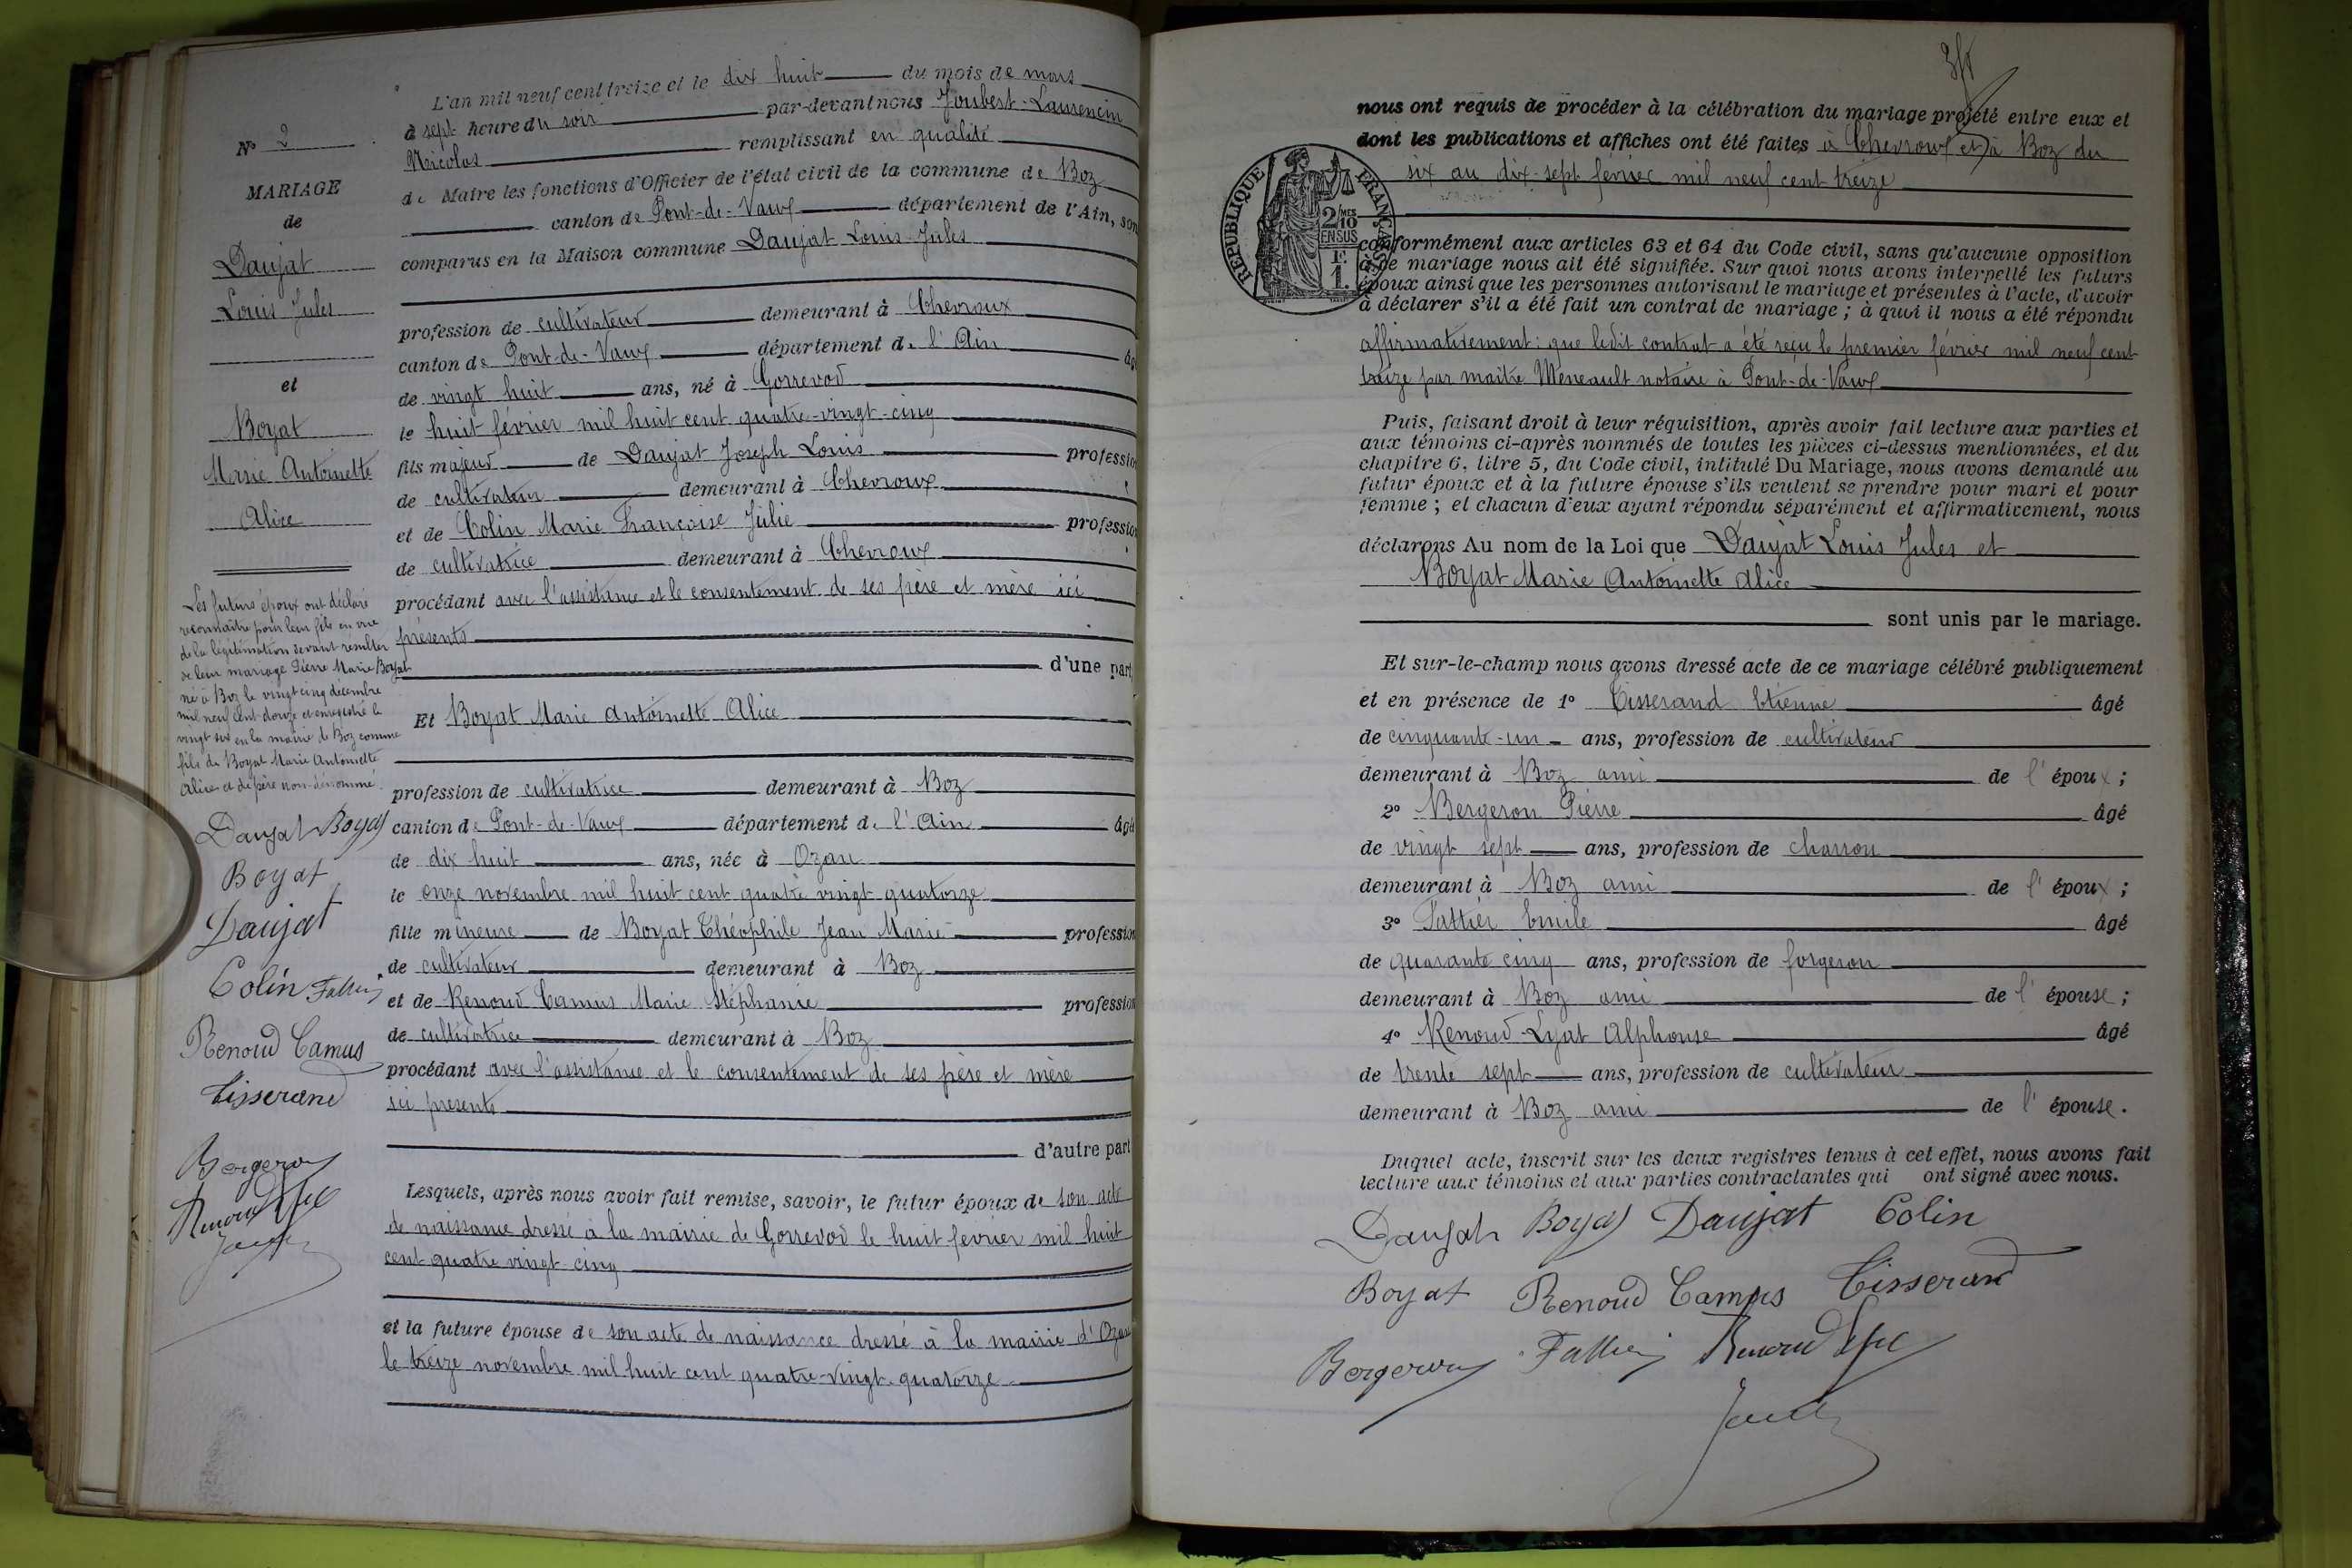 N° 2
MARIAGE
de
Daujat
Louis Jules
et
Boyat
Marie Antoinette
Alice
Les futurs époux ont déclaré
reconnaître pour leur fils en vue
de la légitimation devant résulter
de leur mariage Pierre Marie Boyat
né à Boz le vingt cinq décembre
mil neuf cent douze et enregistré le
vingt six en la mairie de Boz comme
fils de Boyat Marie Antoinette
Alice et de père non dénommé.
Daujat Boyat
Boyat
Daujat
Colin Fattier
Renoud Camus
Tisserand
Bergeron
Renoud Lyat
L'an mil neuf cent treize et le dix huit du mois de mars
à sept heure du soir par-devant nous Joubert-Laurencin
Nicolas remplissant en qualité
de Maire les fonctions d'Officier de l'état civil de la commune de Boz
canton de Pont-de-Vaux département de l'Ain, son
comparus en la Maison commune Daujat Louis Jules
profession de cultivateur demeurant à Chevroux
canton de Pont-de-Vaux département de l'Ain âgé
de vingt huit ans, né à Gorrevod
le huit février mil huit cent quatre-vingt-cinq
fils majeur de Daujat Joseph Louis profession
de cultivateur demeurant à Chevroux
et de Colin Marie Françoise Julie profession
de cultivatrice demeurant à Chevroux
procédant avec l'assistance et le consentement de ses père et mère ici
présents
d'une part
Et Boyat Marie Antoinette Alice
profession de cultivatrice demeurant à Boz
canton de Pont-de-Vaux département de l'Ain âgée
de dix huit ans, née à Ozan
le onze novembre mil huit cent quatre vingt quatorze
fille mineure de Boyat Théophile Jean Marie profession
de cultivateur demeurant à Boz
et de Renoud Camus Marie Stéphanie profession
de cultivatrice demeurant à Boz
procédant avec l'assistance et le consentement de ses père et mère
ici présents
d'autre part
Lesquels, après nous avoir fait remise, savoir, le futur époux de son acte
de naissance dressé à la mairie de Gorrevod le huit février mil huit
cent quatre vingt cinq
et la future épouse de son acte de naissance dressé à la mairie d'Ozan
le treize novembre mil huit cent quatre-vingt-quatorze
nous ont requis de procéder à la célébration du mariage projeté entre eux et
dont les publications et affiches ont été faites à Chevroux et à Boz du
six au dix-sept février mil neuf cent treize
RÉPUBLIQUE FRANÇAISE
2/10 MES
EN SUS
1 F.
conformément aux articles 63 et 64 du Code civil, sans qu'aucune opposition
à ce mariage nous ait été signifiée. Sur quoi nous avons interpellé les futurs
époux ainsi que les personnes autorisant le mariage et présentes à l'acte, d'avoir
à déclarer s'il a été fait un contrat de mariage ; à quoi il nous a été répondu
affirmativement : que ledit contrat a été reçu le premier février mil neuf cent
treize par maître Meneault notaire à Pont-de-Vaux
Puis, faisant droit à leur réquisition, après avoir fait lecture aux parties et
aux témoins ci-après nommés de toutes les pièces ci-dessus mentionnées, et du
chapitre 6, titre 5, du Code civil, intitulé Du Mariage, nous avons demandé au
futur époux et à la future épouse s'ils veulent se prendre pour mari et pour
femme ; et chacun d'eux ayant répondu séparément et affirmativement, nous
déclarons Au nom de la Loi que Daujat Louis Jules et
Boyat Marie Antoinette Alice
sont unis par le mariage.
Et sur-le-champ nous avons dressé acte de ce mariage célébré publiquement
et en présence de 1° Tisserand Etienne âgé
de cinquante-un ans, profession de cultivateur
demeurant à Boz ami de l'époux ;
2° Bergeron Pierre âgé
de vingt sept ans, profession de charron
demeurant à Boz ami de l'époux ;
3° Fattier Emile âgé
de quarante cinq ans, profession de forgeron
demeurant à Boz ami de l'épouse ;
4° Renoud-Lyat Alphonse âgé
de trente sept ans, profession de cultivateur
demeurant à Boz ami de l'épouse.
Duquel acte, inscrit sur les deux registres tenus à cet effet, nous avons fait
lecture aux témoins et aux parties contractantes qui ont signé avec nous.
Daujat Boyat Daujat Colin
Boyat Renoud Camus Tisserand
Bergeron Fattier Renoud Lyat